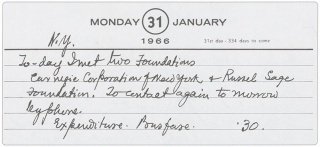 MONDAY 31 JANUARY
1966
31st day - 334 days to come
N.Y.
To-day I met two Foundations
Carnegie Corporation of New York & Russel Sage
Foundation. To contact again to morrow
by phone.
Expenditure. Busfare. .30.